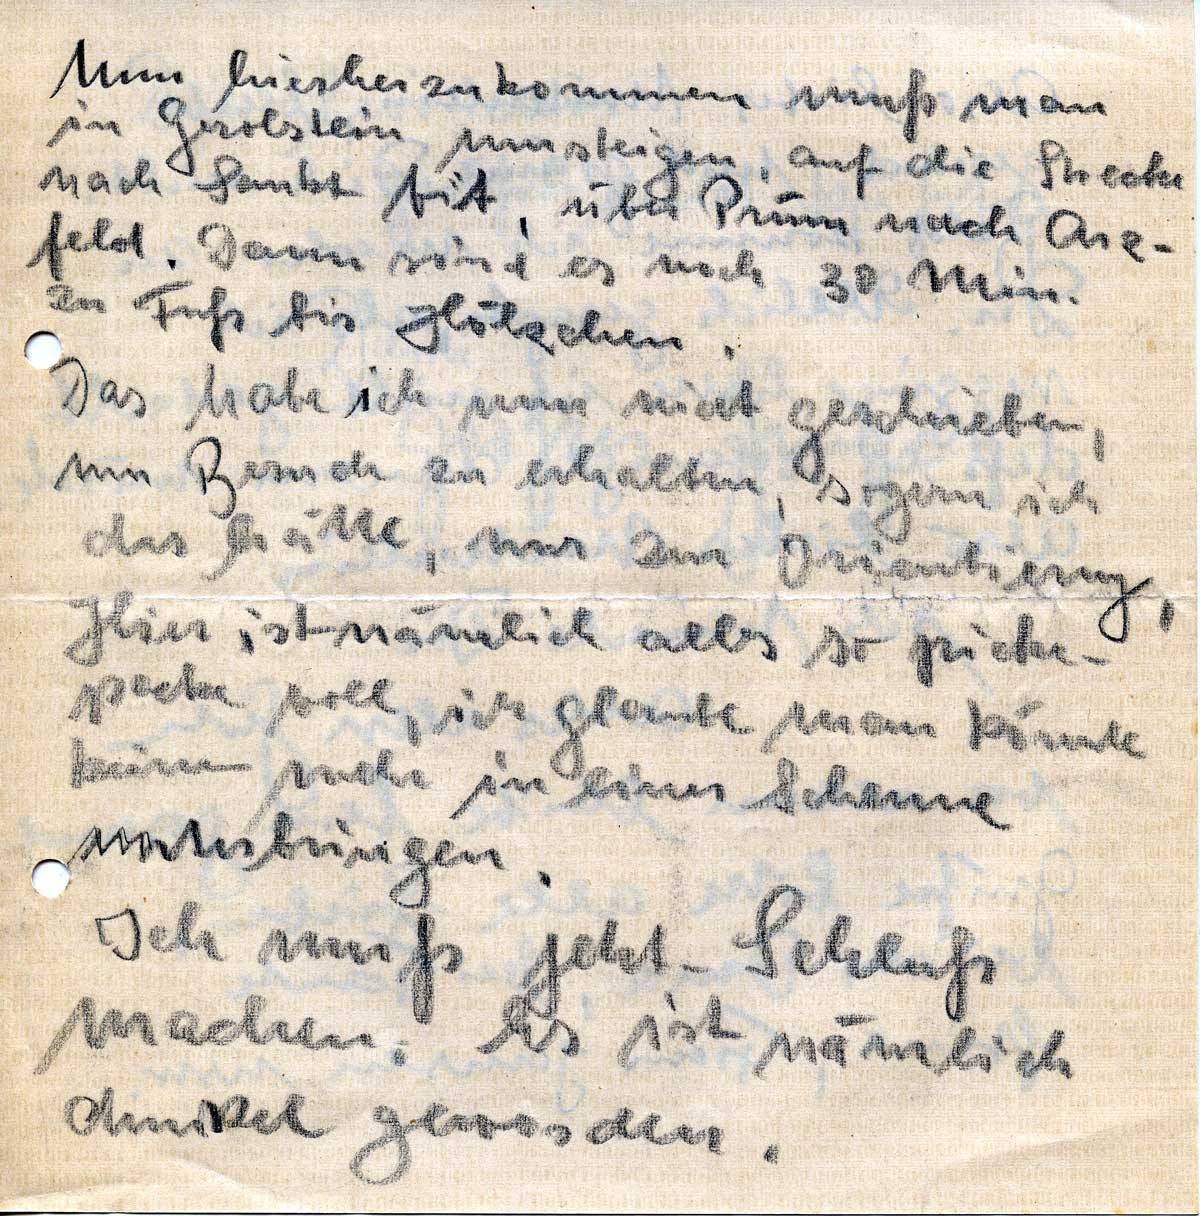 Um hierherzukommen muß man
in Gerolstein umsteigen, auf die Strecke
nach Sankt Vit, über Prüm nach Are-
feld. Dann sind es noch 30 Min.
zu Fuß bis Hölzchen.
Das habe ich nun nicht geschrieben,
um Besuch zu erhalten, so gern ich
das hätte, nur zur Orientierung,
Hier ist nämlich alles so picke-
packe voll, ich glaube man könnte
keinen mehr in einer Scheune
unterbringen.
Ich muß jetzt Schluß
machen. Es ist nämlich
dunkel geworden.